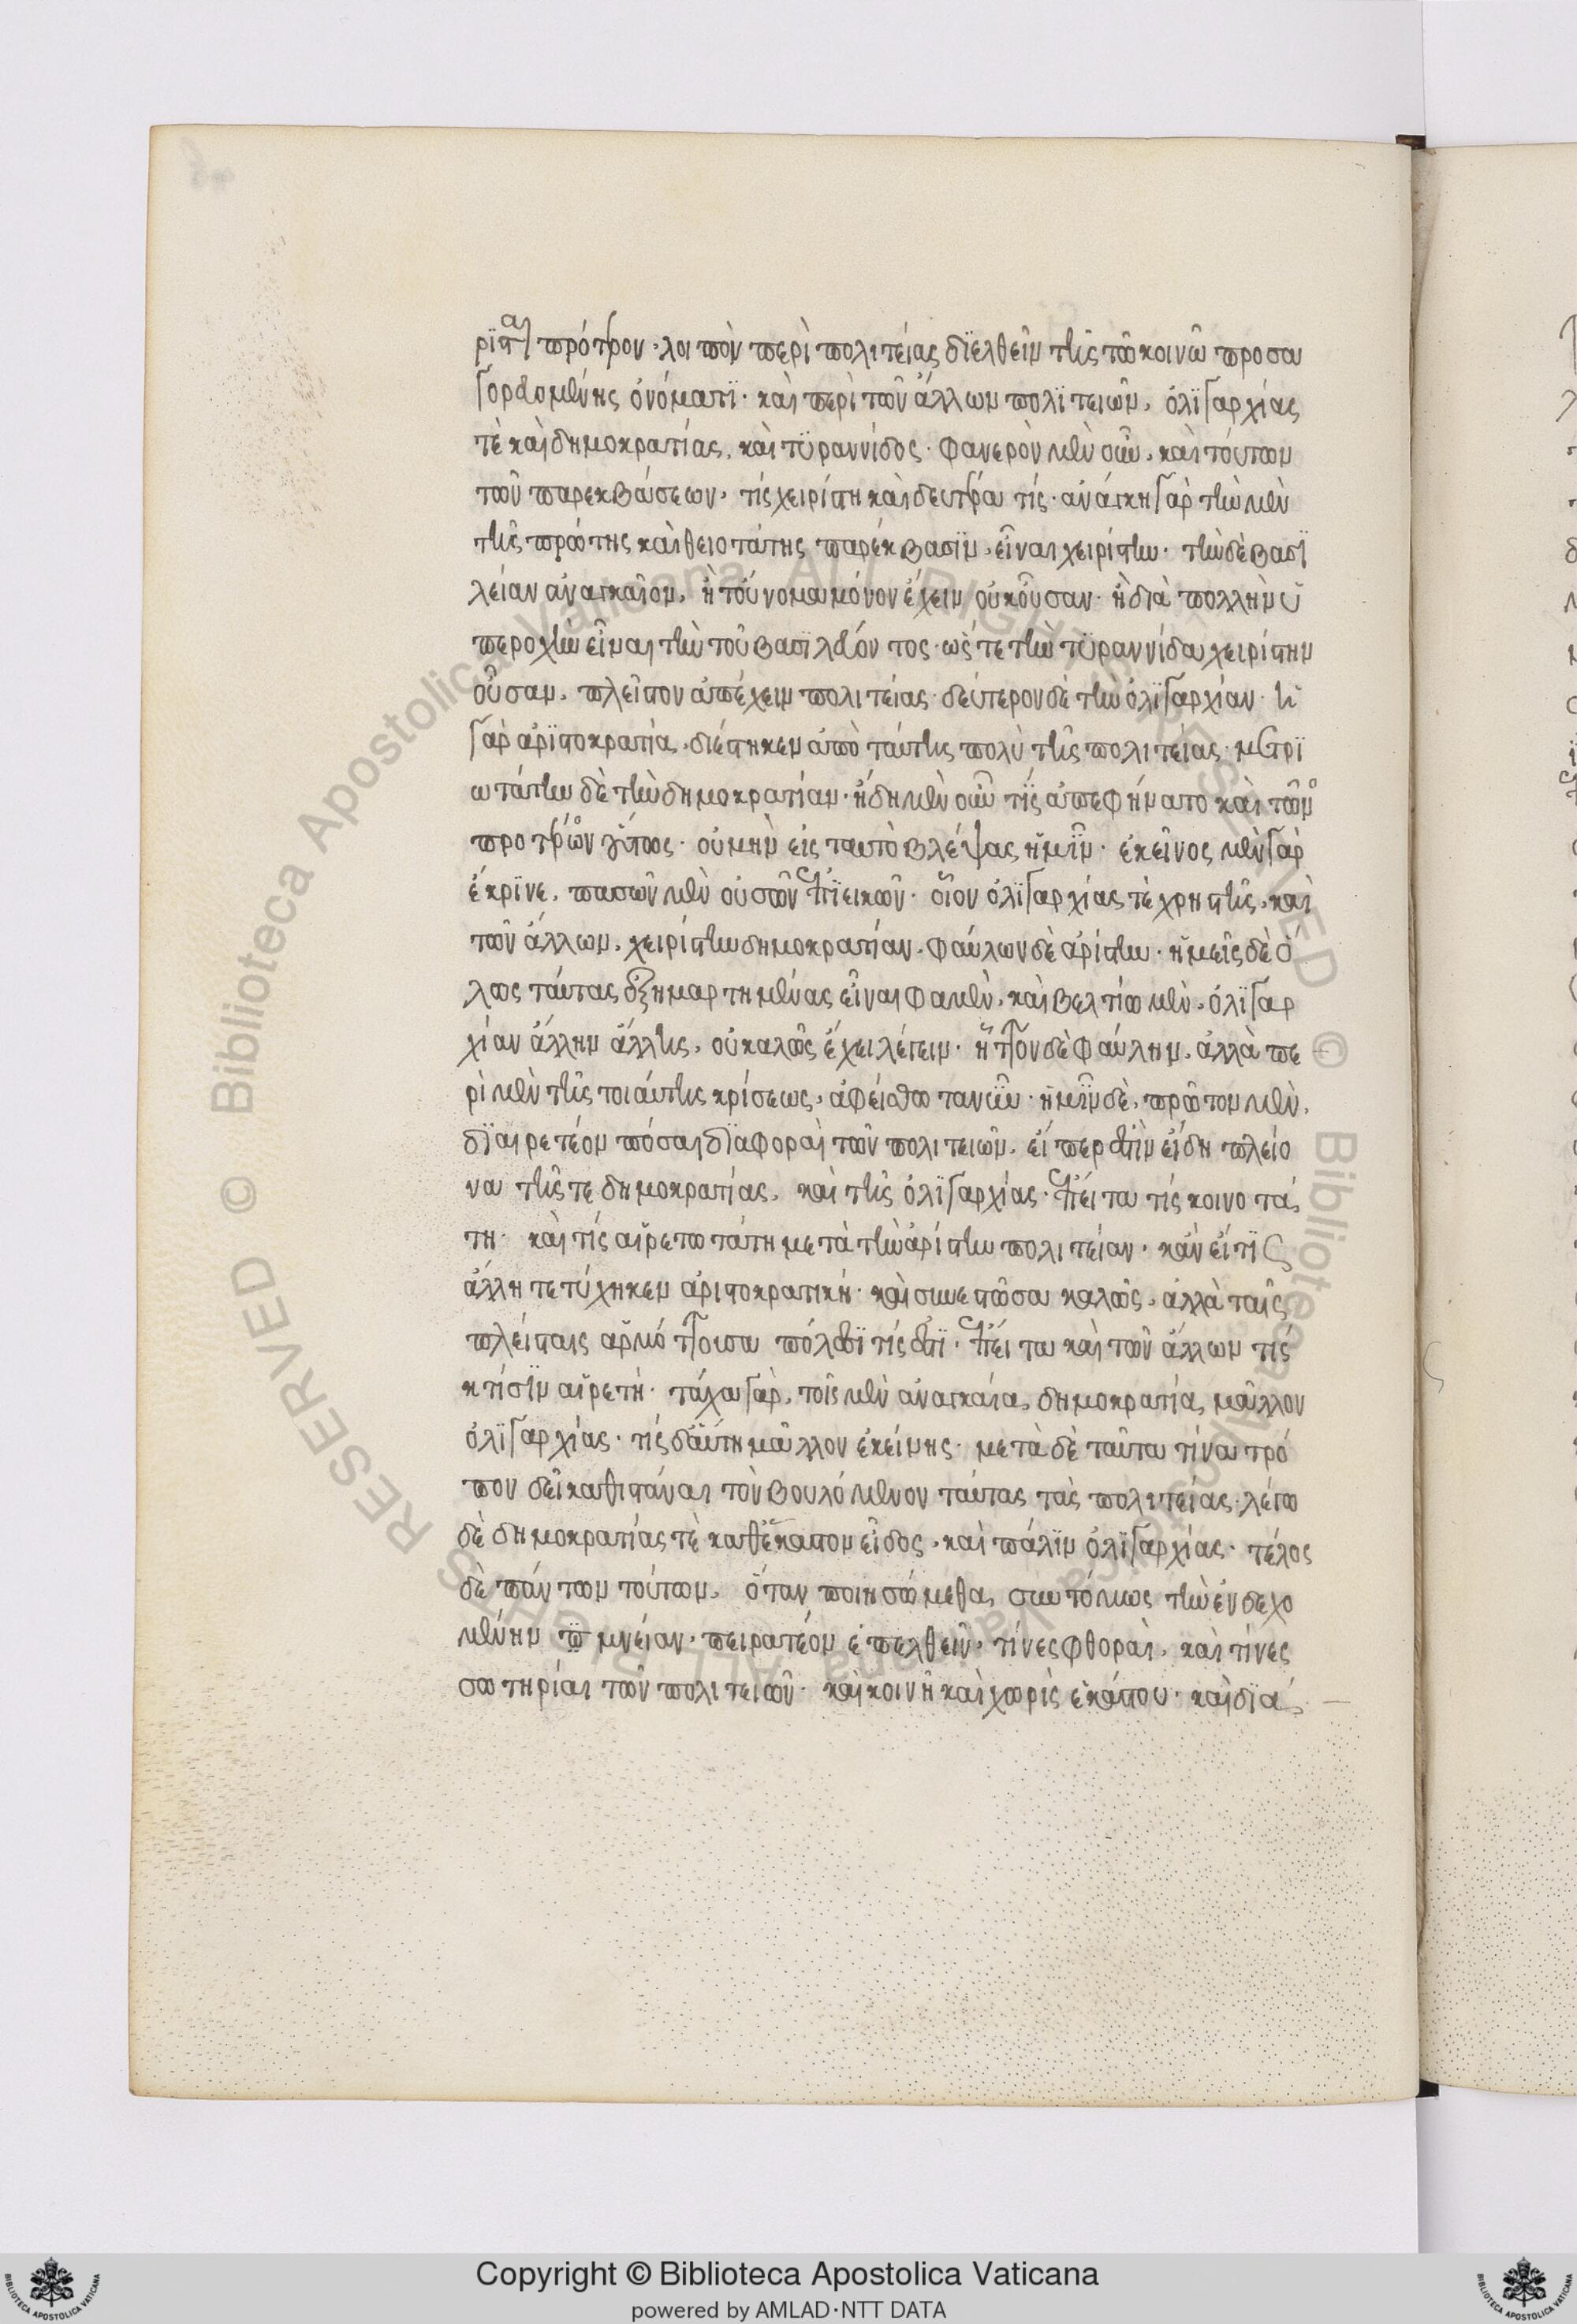 ρϊσται πρότερον, λοιπὸν περὶ πολιτείας διελθεῖν τῆς τῶ κοινῶ προσα
γορευομένης ὀνόματϊ· καὶ περὶ τῶν ἄλλων πολϊτειῶν, ὀλϊγαρχίας
τὲ καὶ δημοκρατίας, καὶ τϋραννίδος· φανερὸν μὲν οὖν, καὶ τούτων
τῶν παρεκβάσεων, τίς χειρίστη καὶ δευτέρα τίς· ἀνάγκη γὰρ τὴν μὲν
τῆς πρώτης καὶ θειοτάτης παρέκβασϊν, εἶναι χειρίστην· τὴν δὲ βασϊ
λείαν ἀναγκαῖον, ἢ τοὔνομα μόνον ἔχειν οὐκ οὖσαν· ἢ διὰ πολλὴν ὑ
περοχὴν εἶναι τὴν τοῦ βασϊλεύοντος· ὥς τε τὴν τϋραννίδα χειρίστην
οὖσαν, πλεῖστον ἀπέχειν πολιτείας· δεύτερον δὲ τὴν ὀλϊγαρχίαν· ἡ
γὰρ ἀρϊστοκρατία, διέστηκεν ἀπὸ ταύτης πολὺ τῆς πολιτείας· μετρϊ
ωτάτην δὲ τὴν δημοκρατίαν· ἤδη μὲν οὖν τϊς ἀπεφήνατο καὶ τῶν
προτέρων οὕτως· οὐ μὴν εἰς ταυτὸ βλέψας ἡμῖν· ἐκεῖνος μὲν γὰρ
ἔκρϊνε, πασῶν μὲν οὐσῶν ἐπϊεικῶν· οἷον ὀλϊγαρχίας τὲ χρηστῆς, καὶ
τῶν ἄλλων, χειρίστην δημοκρατίαν, φαύλων δὲ ἀρίστην· ἡμεῖς δὲ ὅ
λως ταύτας ἐξημαρτημένας εἶναι φαμὲν, καὶ βελτίω μὲν, ὀλϊγαρ
χίαν ἄλλην ἄλλης, οὐ καλῶς ἔχει λέγειν· ἧττον δὲ φαύλην, ἀλλὰ πε
ρὶ μὲν τῆς τοιαύτης κρίσεως, ἀφείσθω τανῦν· ἡμῖν δὲ, πρῶτον μὲν,
δϊαιρετέον πόσαι δϊαφοραὶ τῶν πολιτειῶν, εἴ περ ἐστὶν εἴδη πλείο
να τῆς τε δημοκρατίας, καὶ τῆς ὀλϊγαρχίας· ἔπειτα τίς κοινοτά
τη· καὶ τίς αἱρετωτάτη μετὰ τὴν ἀρίστην πολιτείαν· κἂν εἴ τϊς
ἄλλη τετύχηκεν ἀριστοκρατικὴ· καὶ συνεστῶσα καλῶς, ἀλλὰ ταῖς
πλείσταις ἁρμόττουσα πόλεσϊ τίς ἐστϊ· ἔπειτα καὶ τῶν ἄλλων τίς
κ τίσϊν αἱρετή· τάχα γὰρ, τοῖς μὲν ἀναγκαία, δημοκρατία, μᾶλλον
ὀλϊγαρχίας· τίς δ' αὕτη μᾶλλον ἐκείνης· μετὰ δὲ ταῦτα τίνα τρό
πον δεῖ καθιστάναι τὸν βουλόμενον ταύτας τὰς πολιτείας· λέγω
δὲ δημοκρατίας τὲ καθ' ἕκαστον εἶδος, καὶ πάλϊν ὀλϊγαρχίας· τέλος
δὲ πάντων τούτων, ὅταν ποιησώμεθα, συντόμως τὴν ἐνδεχο
μένην μνείαν, πειρατέον ἐπελθεῖν, τίνες φθοραὶ, καὶ τίνες
σωτηρίαι τῶν πολιτειῶν· καὶ κοινῆ καὶ χωρὶς ἑκάστου· καὶ δϊὰ
Copyright © Biblioteca Apostolica Vaticana
powered by AMLAD·NTT DATA